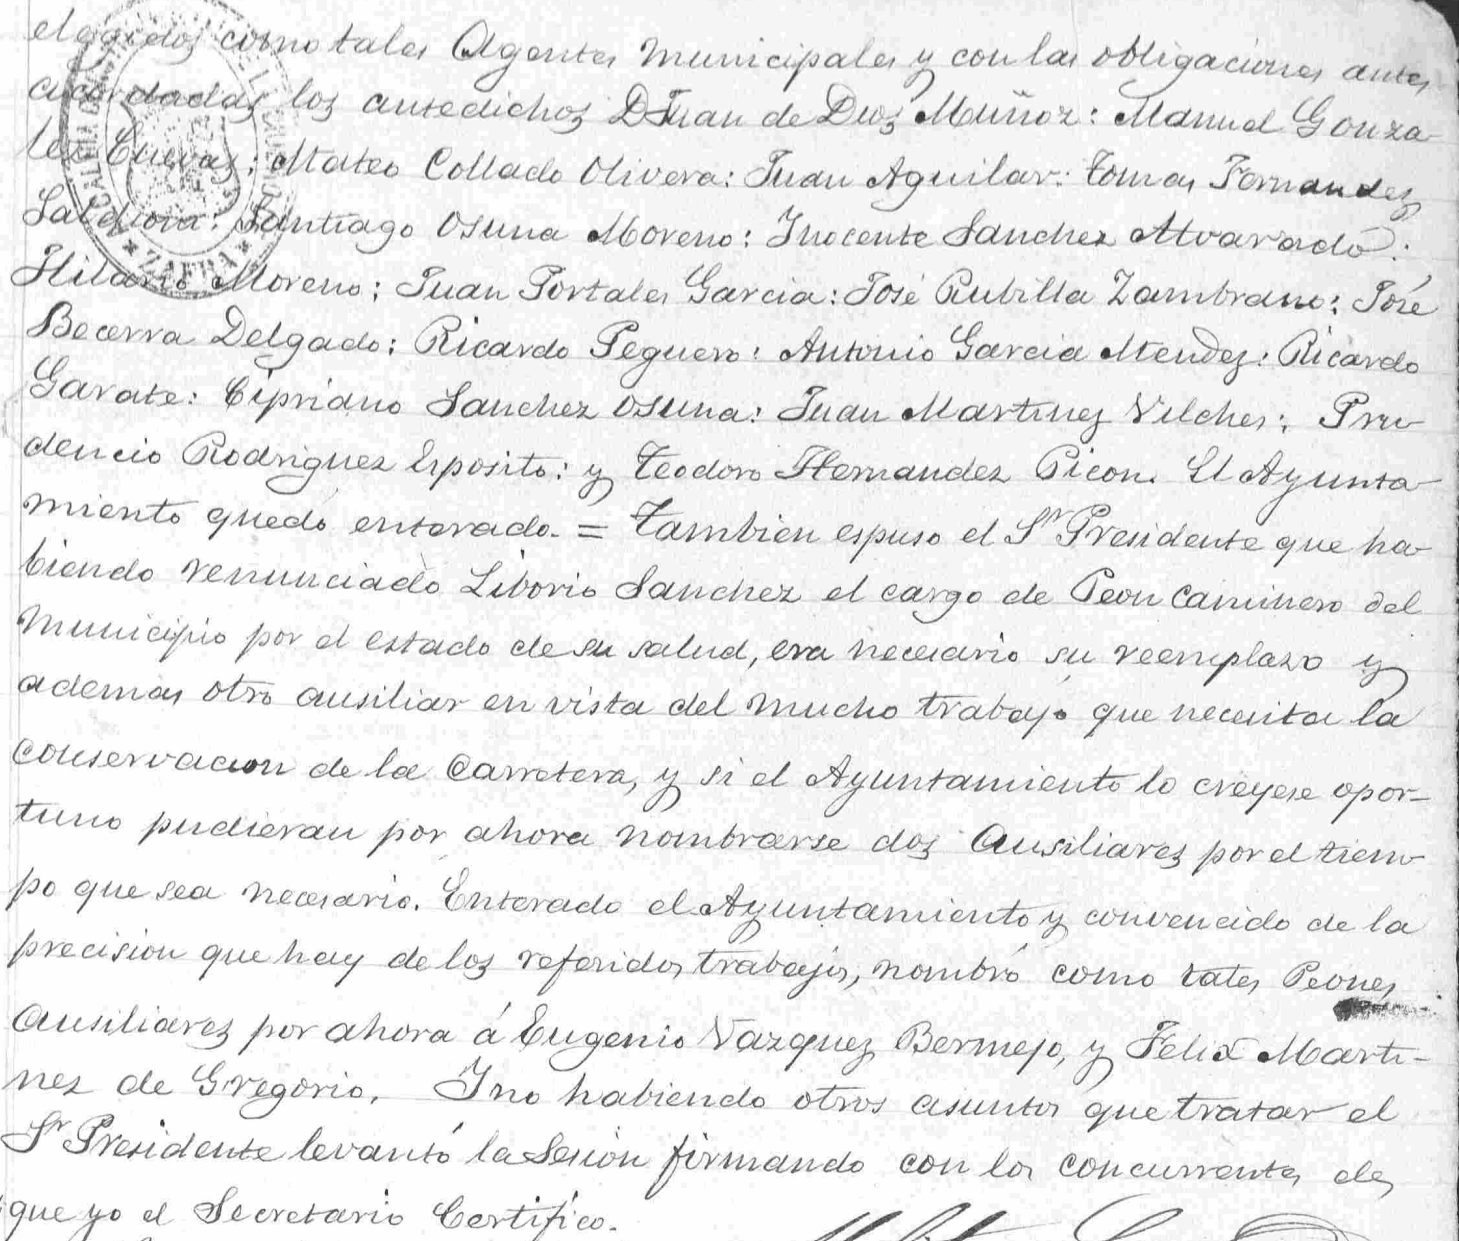 elegidos como tales Agentes Municipales y con las obligaciones antes
acordadas los antedichos D Juan de Dios Muñoz: Manuel Gonza-
lez Cuevas: Mateo Collado Olivera: Juan Aguilar: Tomas Fernandez
Santiago Osuna Moreno: Inocente Sanchez Alvarado:
Hilario Moreno; Juan Portales Garcia: José Rubilla Zambrano: José
Becerra Delgado: Ricardo Peguero: Antonio Garcia Mendez: Ricardo
Garate: Cipriano Sanchez Osuna: Juan Martinez Vilches: Pru-
dencio Rodriguez Esposito: y Teodoro Hernandez Picon. El Ayunta-
miento quedó enterado. = Tambien espuso el Sr Presidente que ha-
biendo renunciado Liborio Sanchez el cargo de Peon Caminero del
Municipio por el estado de su salud, era necesario su reemplazo y
ademas otro ausiliar en vista del mucho trabajo que necesita la
conservacion de la Carretera, y si el Ayuntamiento lo creyese opor-
tuno pudieran por ahora nombrarse dos Ausiliares por el tiem-
po que sea necesario. Enterado el Ayuntamiento y convencido de la
precision que hay de los referidos trabajos, nombró como tales Peones
Ausiliares por ahora á Eugenio Vazquez Bermejo, y Felix Marti-
nez de Gregorio. Y no habiendo otros asuntos que tratar el
Sr Presidente levantó la Sesion firmando con los concurrentes de
que yo el Secretario Certifico.
ZAFRA